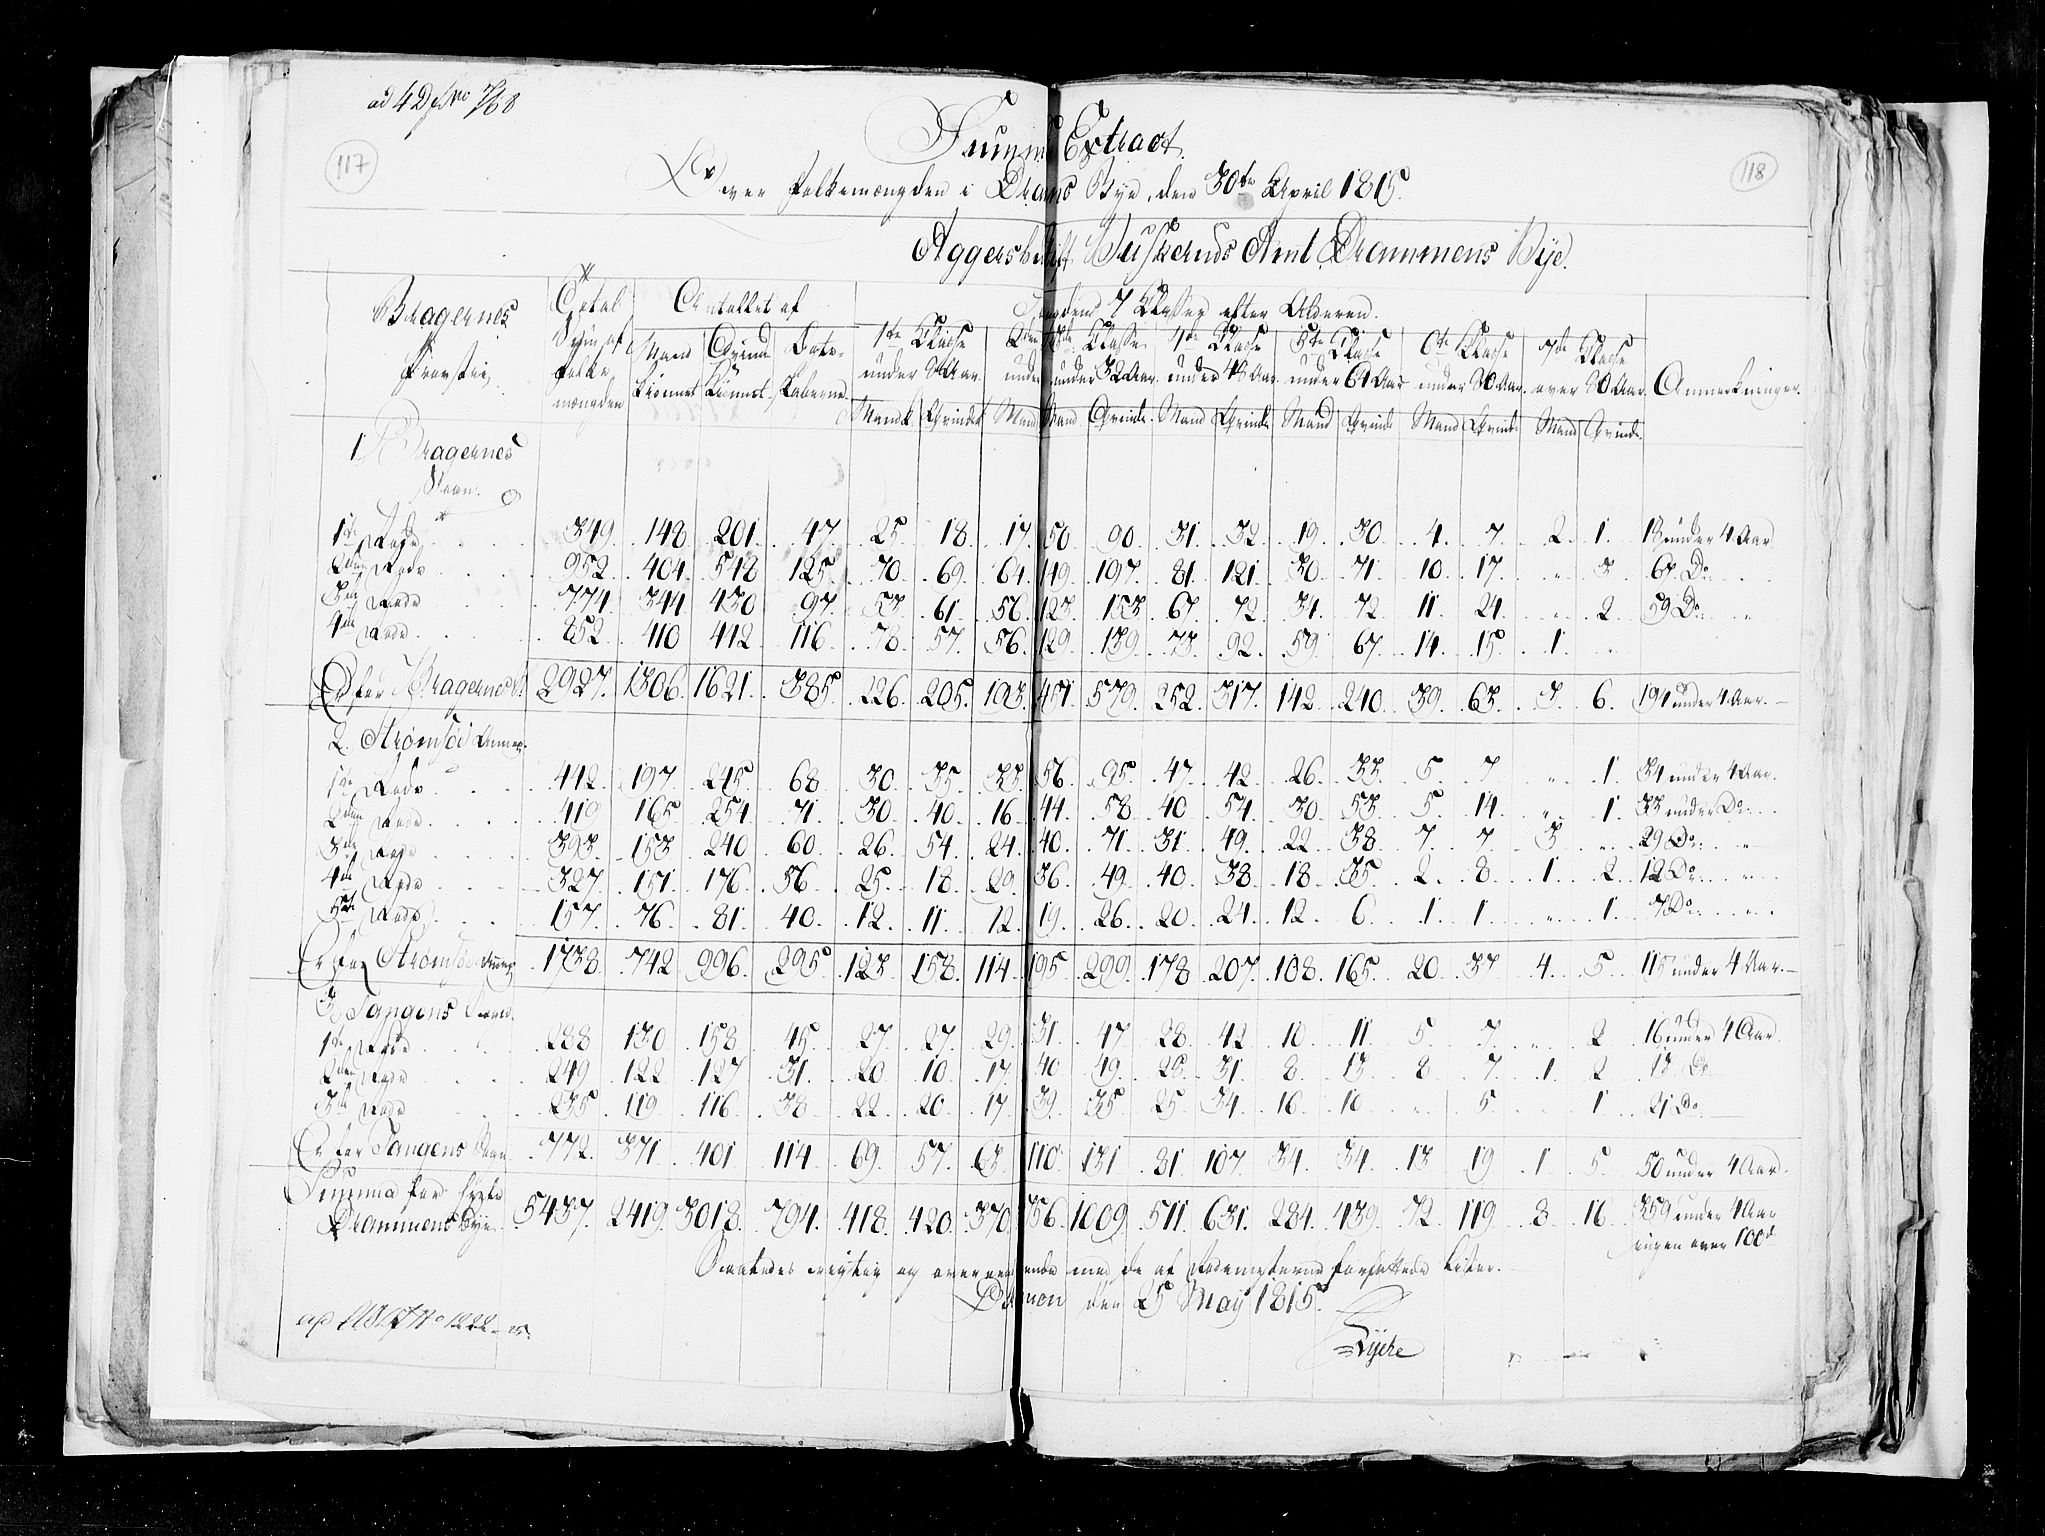 117
118
Summ Extract
Over Folkemængden i Drams Bye, den 30te April 1815.
Aggersh Stift Buskeruds Amt Drammens Bye.
Bragernes Provstie
Total Sum af Folke mængden
Antallet af
Mand Kiønnet
Qvind Kiønnet
7 Classer efter Alderen.
1te Classe under 8 Aar
2den under
3de Classe under 32 Aar
4de Classe under 48 Aar
5te Classe under 64 Aar
6te Classe under 80 Aar
7de Classe over 80 Aar
Anmerkninger.
Mand Qvinde Mand Mand Qvinde Mand Qvinde Mand Qvinde Mand Qvinde Mand Qvinde
1, Bragernes
1te Rode 349. 148. 201. 47. 25. 18. 17. 50. 90. 31. 32. 19. 30. 4. 7. 2. 1. 18 under 4 Aar
2den Rode 952. 404. 548. 125. 70. 69. 64. 149. 197. 81. 121. 30. 71. 10. 17. „ 3. 67. Do
3die Rode 774. 344. 430. 97. 53. 61. 56. 123. 153. 67. 72. 34. 72. 11. 24. „ 2. 59 Do
4de Rode 852. 410 442. 116. 78. 57. 56. 129. 139. 73. 92. 59. 67. 14. 15. 1. „
Er for Bragernes 2927. 1306. 1621. 385. 226. 205. 193. 451. 579. 252. 317. 142. 240. 39. 63. 3. 6. 194 under 4 Aar.
2. Strømsøe
1te Rode 442. 197. 245. 68. 30. 35. 33. 56. 95. 47. 42. 26. 33. 5. 7. „ 1. 34 under 4 Aar.
2den Rode 419. 165. 254. 71. 30. 40. 16. 44. 58. 40. 54. 30. 53. 5. 14. „ 1. 33 under Do
3de Rode 393. 153. 240. 60. 26. 54. 24. 40. 71. 31. 49. 22. 38. 7. 7. 3. „ 29 Do
4de Rode 327. 151. 176. 56. 25. 18. 29. 36. 49. 40. 38. 18. 35. 2. 8. 1. 2. 12 Do
5te Rode 157. 76. 81. 40. 12. 11. 12. 19. 26. 20. 24. 12. 6. 1. 1. „ 1. 7 Do
Er for Strømsøe 1738. 742. 996. 295. 123. 158. 114. 195. 299. 178. 207. 108. 165. 20. 37. 4. 5. 115 under 4 Aar.
3. Tangens
1te Rode 288 130 158 45. 27. 27. 29. 31. 47. 28. 42. 10. 11. 5. 7. „ 2. 16 under 4 Aar.
2den Rode 249. 122. 127 31. 20. 10. 17. 40. 49. 28. 31. 8. 13. 8. 7. 1. 2. 13 Do
3de Rode 235. 119. 116. 38. 22. 20. 17. 39. 35. 25. 34. 16. 10. „ 5 „ 1. 21 Do
Er for Tangens 772. 371. 401. 114. 69. 57. 63. 110. 131. 81. 107. 34. 34. 13. 19. 1. 5. 50 under 4 Aar.
Summa for Drammens Bye 5437. 2419. 3018. 794. 418. 420. 370. 756. 1009. 511. 631. 284. 439. 72. 119. 8. 16. 359 under 4 Aar
ingen over 100d
Saaledes rigtig og overeens ende med de af Rodemesterne forfattede Lister.
den 25 May 1815.